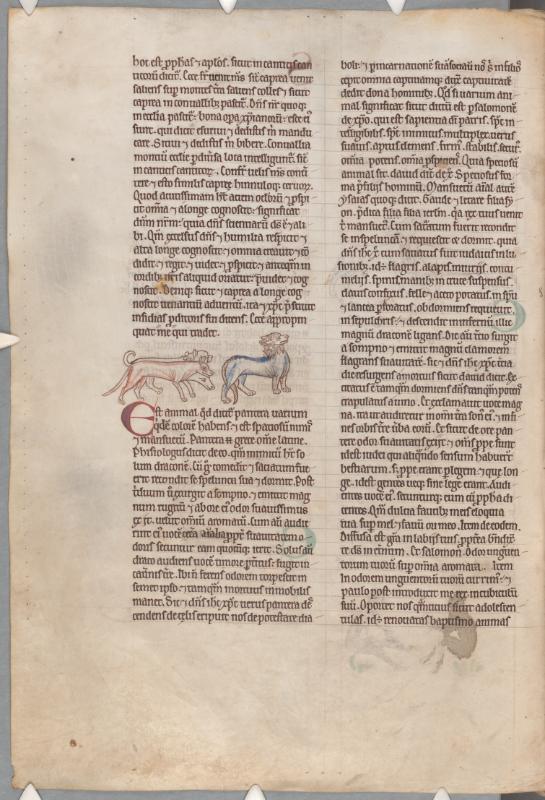 hoc est ꝓphas ⁊ aplos. sicut in canticis can
ticoꝝ dicit. Ecce fr̄uelis m̄s sic̄ caprea uenit
saliens sup montes
caprea in conuallibꝫ pascit̉. Dn̄s n̄r quoqꝫ
in ecclia pascit̉. bona opa xp̄ianoꝝ esce ei
sunt. qui dicit esuriui ⁊ dedistis m̄ mandu
care. Sitiui ⁊ dedistis m̄ bibere. Conuallia
montiū ecclie ꝑ diuersa loca intelligunt̉. sic̄
in canticis canticoꝝ. Conuersus fr̄uelis m̄s
tere ⁊ esto similis capree hinnuloqꝫ ceruoꝝ.
Quod acutissimam h̄t aciem ocloꝝ ⁊ ꝓspi
cit omīa ⁊ a longe cognoscit. significat
dn̄m n̄rm. quia dn̄s scientiarū ds̄ ē ⁊ ali
bi. Qm̄ excelsus dn̄s ⁊ humilia respicit ⁊
alta longe cognoscit ⁊ omnia creauit ⁊
didit. ⁊ regit. ⁊ uidet. ⁊ ꝓspicit. ⁊ anteqm̄ in
cordibꝫ n̄ris aliquid oriatur. ꝓuidet ⁊ cog
noscit. Deniqꝫ sicut ⁊ caprea a longe cog
noscit uenantiū aduentū. ita ⁊ xp̄c p̄sciuit
insidias ꝓditoris sui dicens. Ecce appropin
quat me qui tradet.
Est animal qd̄ dicit̉ pantera uarium
qd̄ē colorē habens ⁊ est speciosū nimis
⁊ mansuetū.
Phisiologus dicit de eo. qm̄ inimicū h̄t so
lum draconē. Cū g̊ comederit ⁊ saciatum fue
rit recondit se spelunca sua ⁊ dormit. Post
triduum exurgit a sompno. ⁊ emittit mag
num rugitū ⁊ ab ore ei odor suauissimus
uelut omniū aromatū. Cum aut̄ audie
rint ei uocē cetera animalia ꝓpt̉ suauitatem o
doris secuntur eam quocūqꝫ ierit. Solus aut̄
draco audiens uocē timore ꝑtritus. fugit in
cauernis tr̄e. Ibi n̄ ferens odorem torpescit in
semet ipso. ⁊ tamqm̄ mortuus inmobilis
manet. Sic ⁊ dn̄s ihc xp̄c uerus pantera des
cendens de celis eripuit nos de potestate dia
boli. ⁊ ꝑ incarnationē suā sociauit
cepit omnia captiuamqꝫ duxit captiuitatē
dedit dona hominibꝫ. Qd̄ ē uarium ani
mal significat sicut dictū est ꝑ salomonē
de xp̄o. qui est sapientia di patris. sp̄c in
telligibilis. sp̄c unicus. multiplex. uerus.
suauis. aptus. clemens. firm̉. stabilis. secur̉.
omīa potens. omīa ꝓspiciens. Quia speciosū
animal sit. dauid dicit de x̄. Speciosus for
ma p̄ filiis hominū. Mansuetū aīal autē
ysaias quoqꝫ dicit. Gaude ⁊ letare filia sy
on. ꝑdica filia ierlm̄. qa rex tuus uenit
t̄ mansuet̉. Cum saciatum fuerit recondit
se in speluncā. ⁊ requiescit ac dormit. quia
dn̄s ihc x̄ cum saciatus fuit iudaicis inlu
sionibꝫ. id ē flagris. alapis. iniuriis. contu
meliis. spinis. manibꝫ in cruce suspensus.
clauis confixus. felle ⁊ aceto potatus.
⁊ lancea ꝑforatus. obdormiens requieuit
in sepulchris. ⁊ descendit in infernū. illic
magnū draconē ligans. Die aut̄ t̄tio surgit
a sompno ⁊ emittit magnū clamorem
flagrans suauitatē. sic ⁊ dn̄s ihc xp̄c t̄tia
die resurgens a mortuis sicut dauid dicit. Ex
citatus ē tamqm̄ dormiens dn̄s tamqm̄ potens
crapulatus a uino. Et exclamauit uoce mag
na. ita ut audiretur in om̄i t̄ra son̉ ei. ⁊ in fi
nes orbis tr̄e ūba eoꝝ. Et sicut de ore pan
tere odor suauitatis exijt. ⁊ om̄s ꝓpe sunt
id est iudei qui aliquando sensum habuerunt
bestiarum. qi ꝓpe erant ꝑ legem. ⁊ que lon
ge. id est gentes ueqꝫ sine lege erant. Audi
entes uocē ei. secuntur eum cū ꝓpha di
centes. Qm̄ dulcia faucibꝫ meis eloquia
tua sup mel ⁊ fauū ori meo. Item de eodem.
Diffusa est grā in labiis tuis. ꝓpt̉ea b̄ndix̄
te ds̄ in et̄num. Et salomon. Odor unguen
torum tuorū sup om̄ia aromata. Item
In odorem unguentorū tuorū currim̉. ⁊
paulo post. introduxit me rex in cubiculū
suū. Oportet nos qm̄citius sicut adolescen
tulas. id ē renouatas baptismo animas